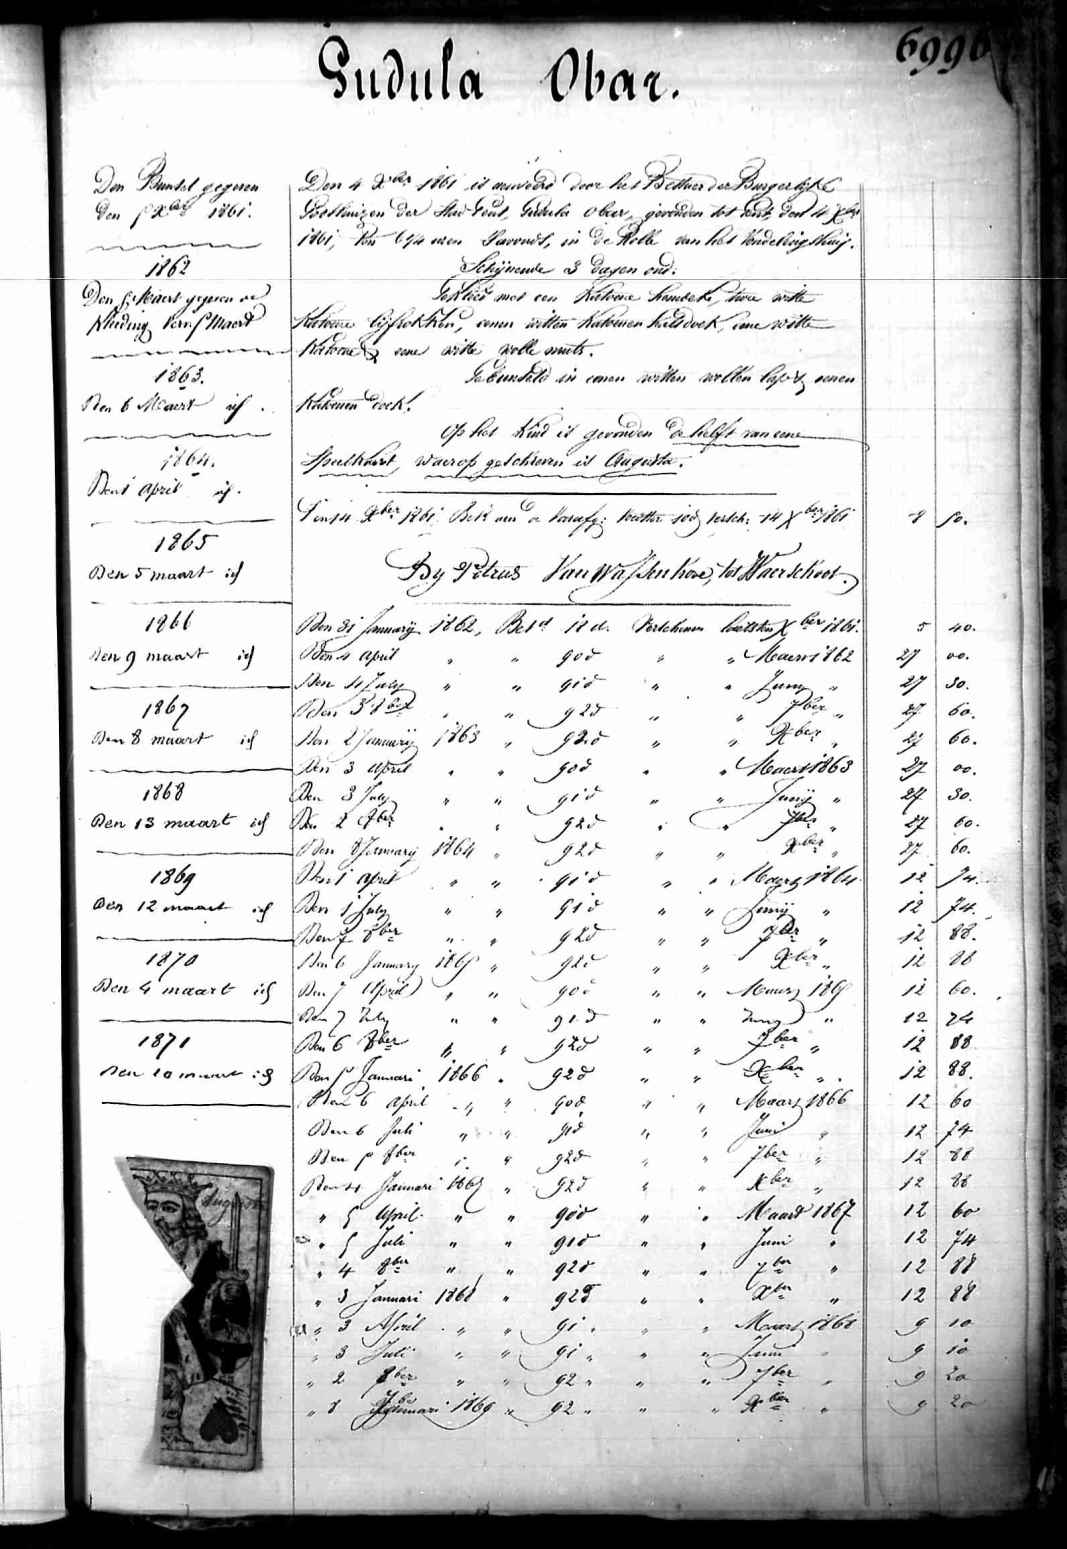 6996
Gudula Obar.
Den Bundel gegeven
den 5 Xber 1861.
1862
Den 5 Maert gegeven de
kleeding vorm 5 Maert
1863.
Den 6 Maert id.
1864.
Den 1 April id.
1865
Den 5 maart id
1866
Den 9 maart id
1867
Den 8 maart id
1868
Den 13 maart id
1869
Den 12 maart id
1870
Den 4 maart id
1871
Den 10 maart id
Den 4 Xber 1861 is door het Bestuer der Burgerlijke
Godshuizen der Stad Gent, Gudula Obar, gevonden tot Gent, den 4 Xber
1861, ten 6 1/4 uren s'avonds, in de Rolle van het Vondelingshuis.
Schijnende 3 dagen oud.
Gekleed met een katoene hemdeke, twee witte
katoene lijfrokken, eenen witten katoenen halsdoek, eene witte
katoene & eene witte wolle muts.
Gebundeld in eenen witten wollen lap & eenen
katoenen doek.
Op het kind is gevonden de helft van eene
Speelkaart, waerop geschreven is Augusta.
Den 14 Xber 1861 14 Xber 1861 8 50.
By Petrus Van Wassenhove, tot Waerschoot.
Den 31 Januarij 1862, Betd 18 d. Verschenen Xber 1861. 5 40.
Den 4 April " " 90 d " " Maert 1862 27 00.
Den 4 July " " 91 d " " Juny " 27 30.
Den 3 8ber " " 92 d " " 7ber " 27 60.
Den 2 Januarij 1863 " 92 d " " Xber " 27 60.
Den 3 April " " 90 d " " Maert 1863 27 00.
Den 3 July " " 91 d " " Junij " 27 30.
Den 2 8ber " " 92 d " " 7ber " 27 60.
Den 8 Januarij 1864 " 92 d " " Xber " 27 60.
Den 1 April " " 91 d " " Maert 1864 12 74.
Den 1 July " " 91 d " " Junij " 12 74.
Den 7 8ber " " 92 d " " 7ber " 12 88.
Den 6 January 1865 " 92 d " " Xber " 12 88
Den 7 April " " 90 d " " Maart 1865 12 60.
Den 7 July " " 91 d " " Juny " 12 74
Den 6 8ber " " 92 d " " 7ber " 12 88
Den 5 Januari 1866 " 92 d " " Xber " 12 88.
Den 6 April " " 90 d " " Maart 1866 12 60
Den 6 Juli " " 91 d " " Juni " 12 74
Den 5 8ber " " 92 d " " 7ber " 12 88
Den 4 Januari 1867 " 92 d " " Xber " 12 88
" 5 April " " 90 d " " Maart 1867 12 60
" 5 Juli " " 91 d " " Juni " 12 74
" 4 8ber " " 92 d " " 7ber " 12 88
" 3 Januari 1868 " 92 d " " Xber " 12 88
" 3 April " " 91 " " " Maart 1868 9 10
" 3 Juli " " 91 " " " Juni " 9 10
" 2 8ber " " 92 " " " 7ber " 9 20
" 8 Januari 1869 " 92 " " " Xber " 9 20